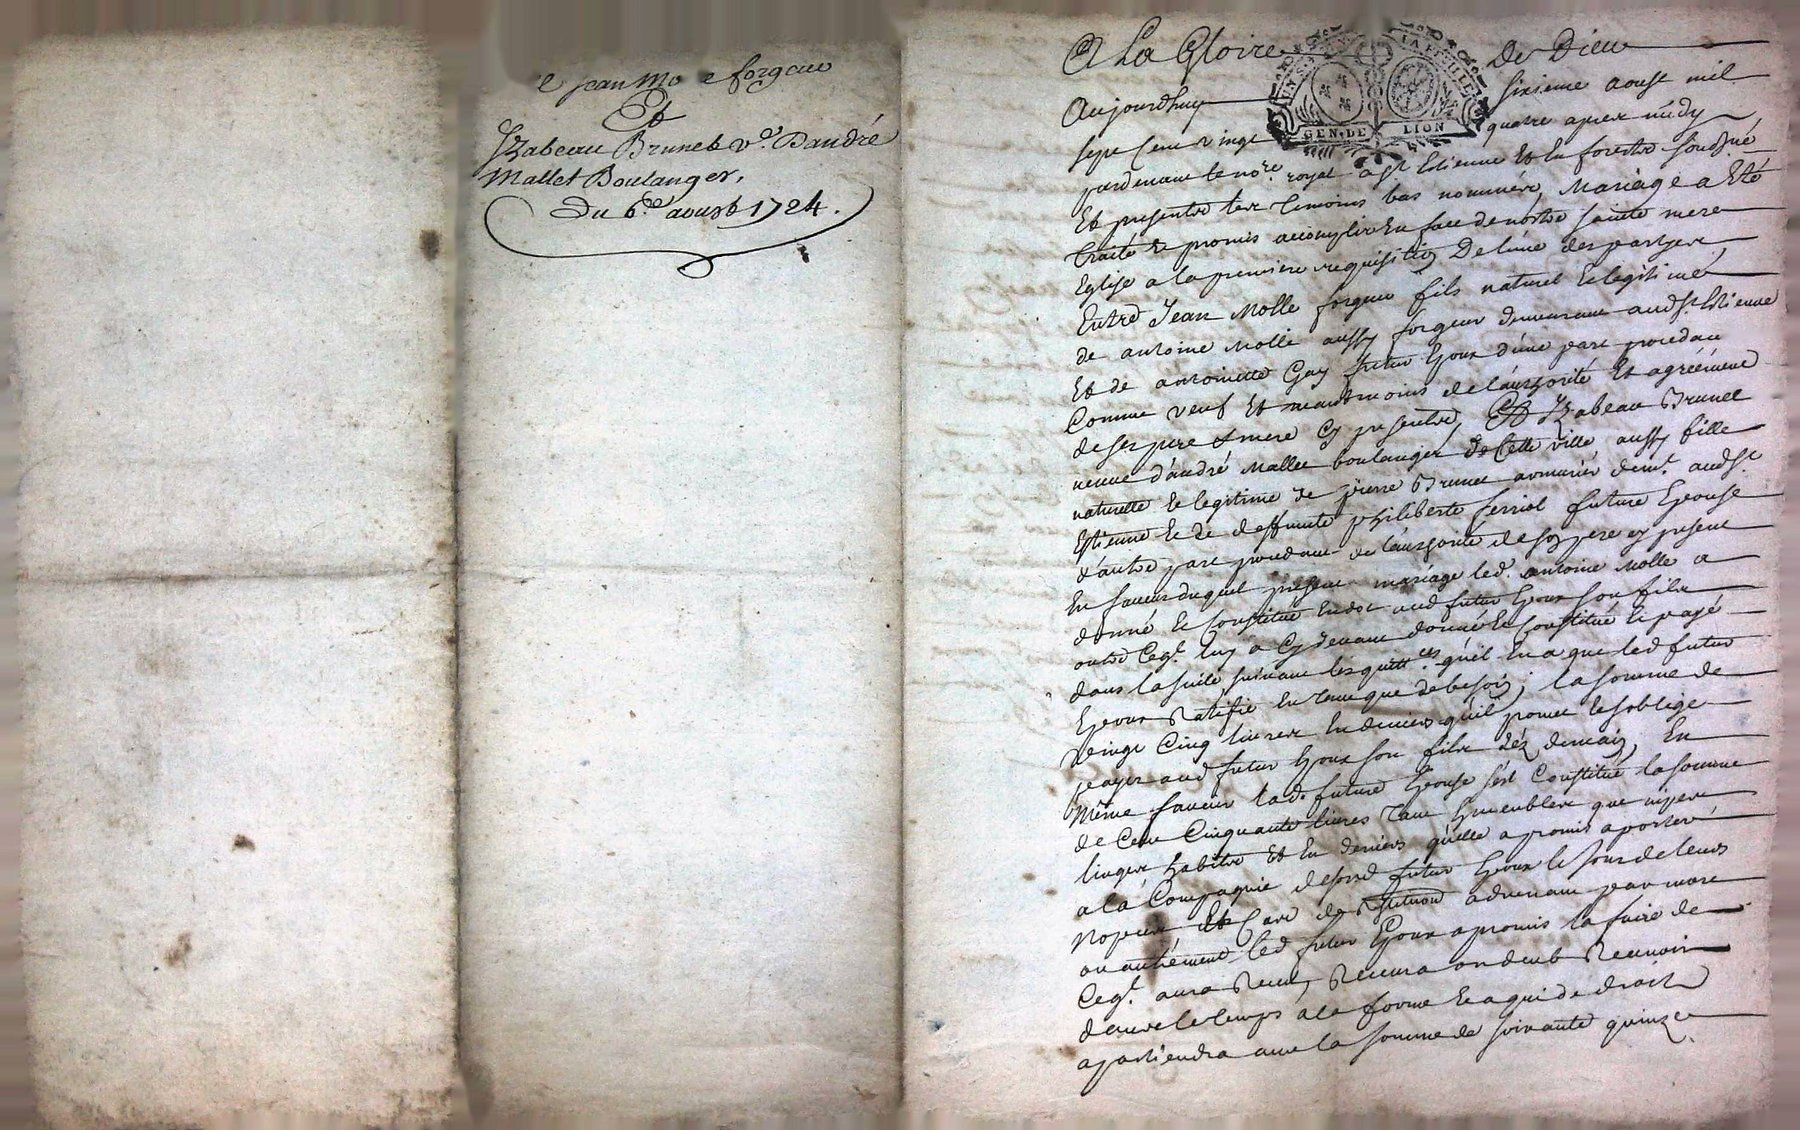 e jean Mo e forgeur
Et
Yzabeau Brunet v.e Dandré
Mallet Boulanger,
Du 6.e aoust 1724.
A La Gloire De Dieu
UN S LA FEUILLE
GEN. DE LION
Aujourdhuy sixieme aoust mil
sept Cent vingt quatre apres midy
pardevant le no.re royal a S.t Estienne Et En forestz soubzné
Et presentz les Temoins bas nommés, Mariage a Eté
Traité & promis accomplir En face de nôstre sainte mere
Eglise a la premiere requisition De lune des parties,
Entre Jean Molle forgeur fils naturel & legitimé
de antoine Molle aussy forgeur demeurant aud. S.t Estienne
Et de antoinette Gay futur Epoux dúne part procedant
Comme veuf Et neantmoins de láuthorité Et agréément
de ses pere & mere Cy presentz, Et Yzabeau Brunet
veuve dándré Mallet boulanger de Cette ville aussy fille
naturelle & legitime de pierre Brunet armurier dem.t aud. S.t
Estienne & de deffunte philiberte ferriol future Epouse
dáutre part procedant de láuthorité de son pere cy present
En faveur duquel present mariage led. antoine Molle a
donné & Constitué En dot aud futur Epoux son fils
outre Ce q.l luy a Cy devant donné & Constitué & payé
dans la suite suivant les quitt.ces qúil En a que led futur
Epoux Ratifie En tant que de besoin; la somme de
vingt Cinq livres En deniers qúil promet & soblige
payer aud futur Epoux son fils déz demain, En
Même faveur lad. future Epouse sést Constitué la somme
de Cent Cinquante livres Tant En meubles que nipes
linges habits Et En deniers qúelle a promis aporter
a la Compagnie dud futur Epoux le Jour de leurs
Nopces Et Cas de Restitution advenant par mort
ou autrement led futur Epoux a promis la faire de
Ce q.l aura Receu, Recevra ou deub Recevoir
dans le temps a la forme & a qui de droit
apartiendra avec la somme de soixante quinze